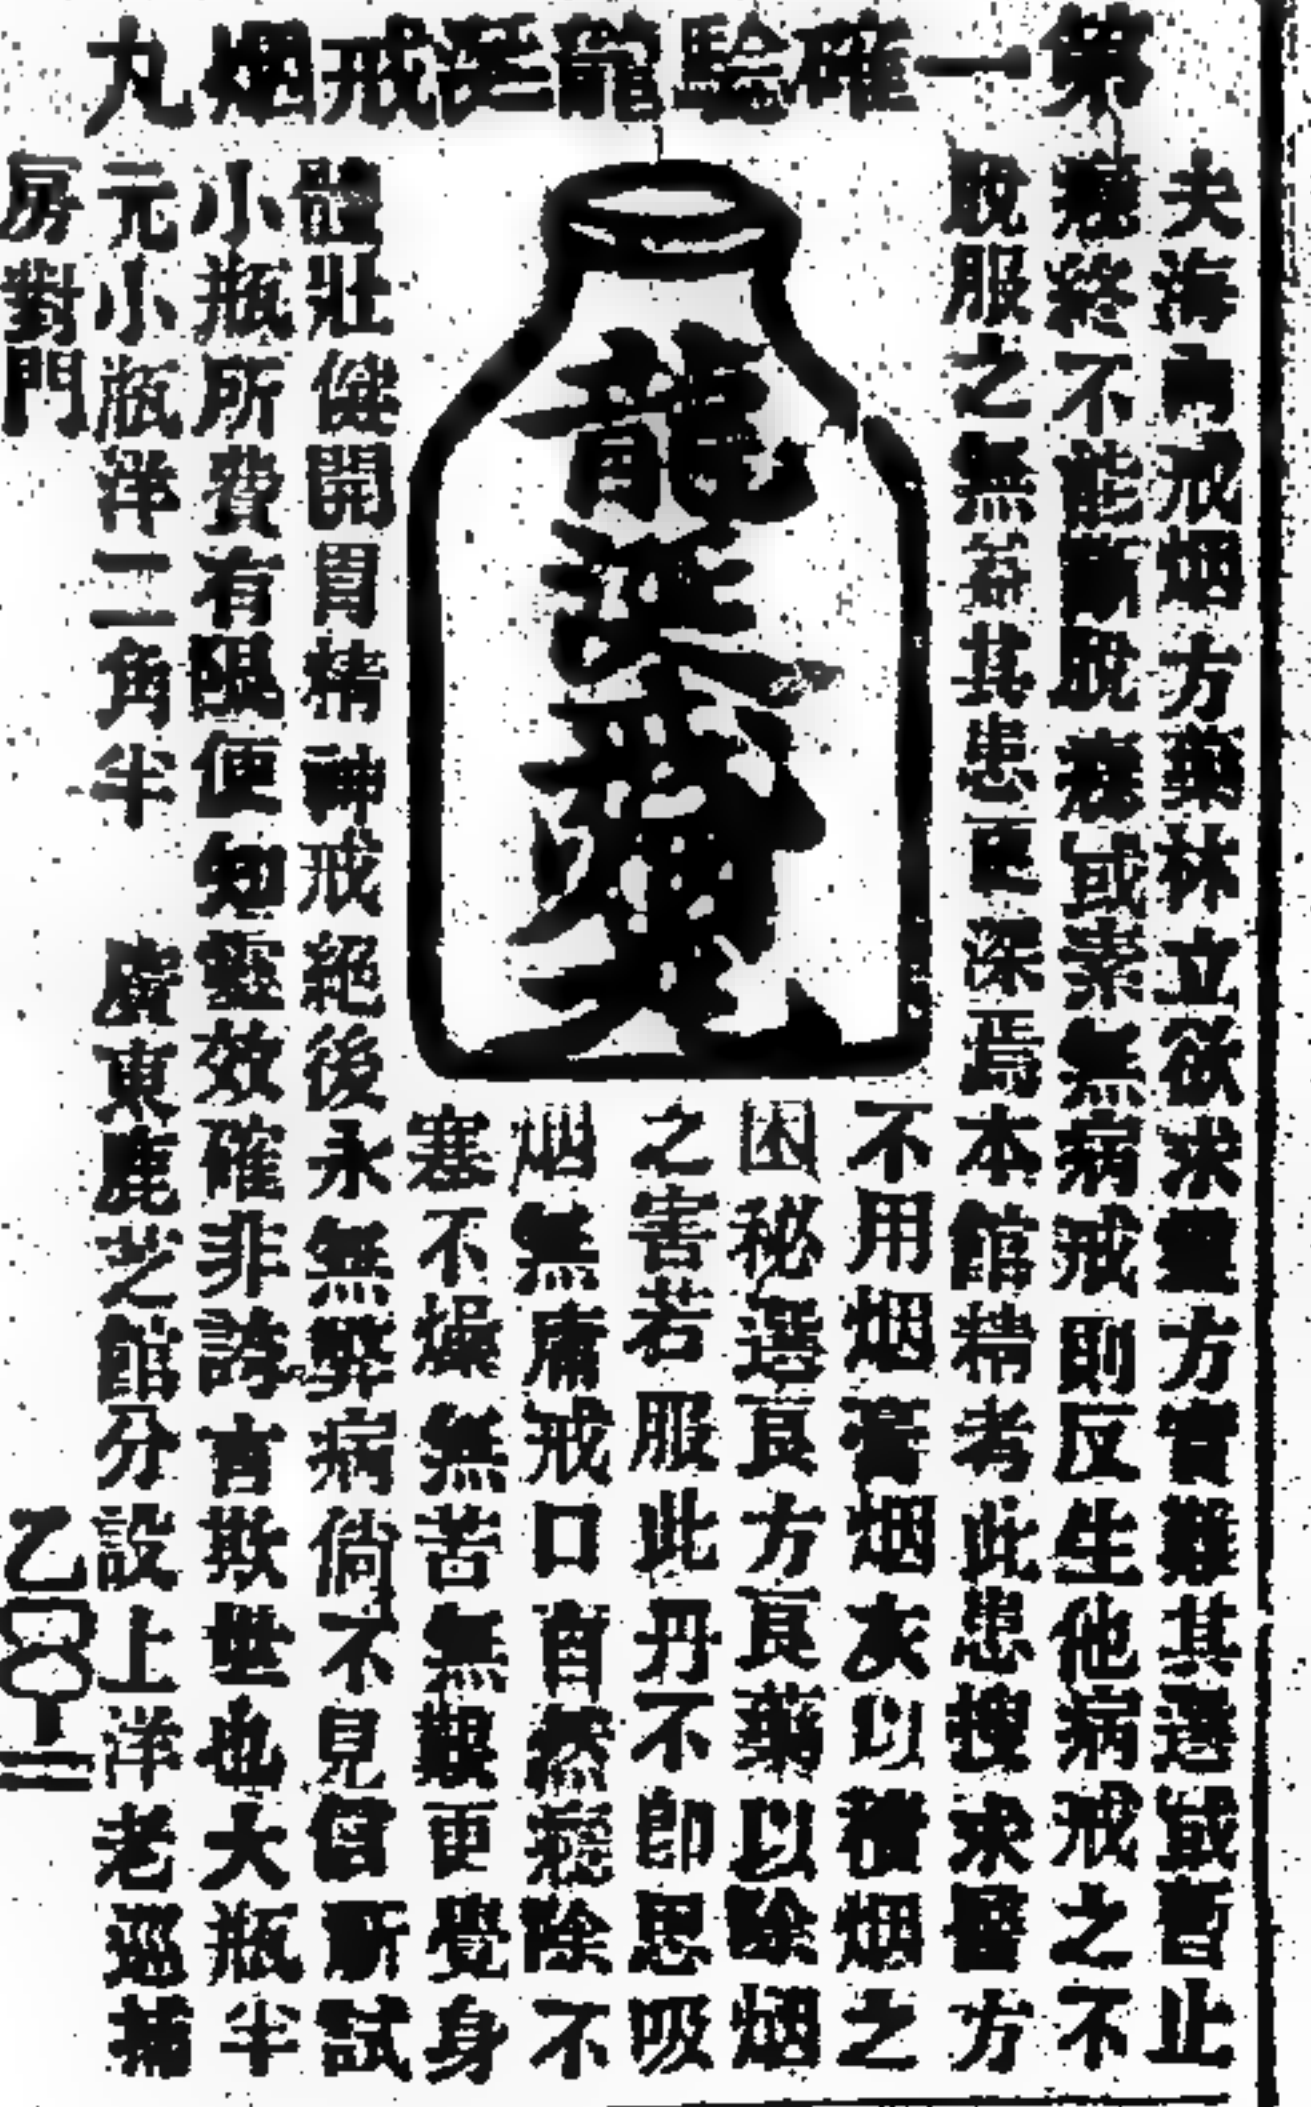 第一確驗龍涎戒烟丸
夫海內戒烟方藥林立欲求靈方實難其選或暫止
癮終不能斷脫癮或素無病戒則反生他病戒之不
脫服之無益其患更深焉本館精考此患搜求醫方
不用烟膏烟灰以積烟之
困秘選良方良藥以除烟
之害若服此丹不即思吸
烟無庸戒口自然癮除不
塞不燥無苦無艱更覺身
龍涎戒烟丸
體壯健開胃精神戒絕後永無弊病倘不見信所試
小瓶所費有限便知靈效確非誇言欺世也大瓶半
元小瓶洋二角半 廣東鹿芝館分設上洋老巡捕
房對門
乙